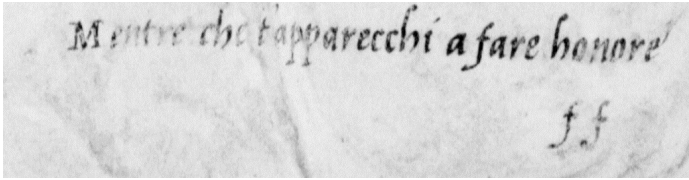 Mentre che t'apparecchi a fare honore
ff